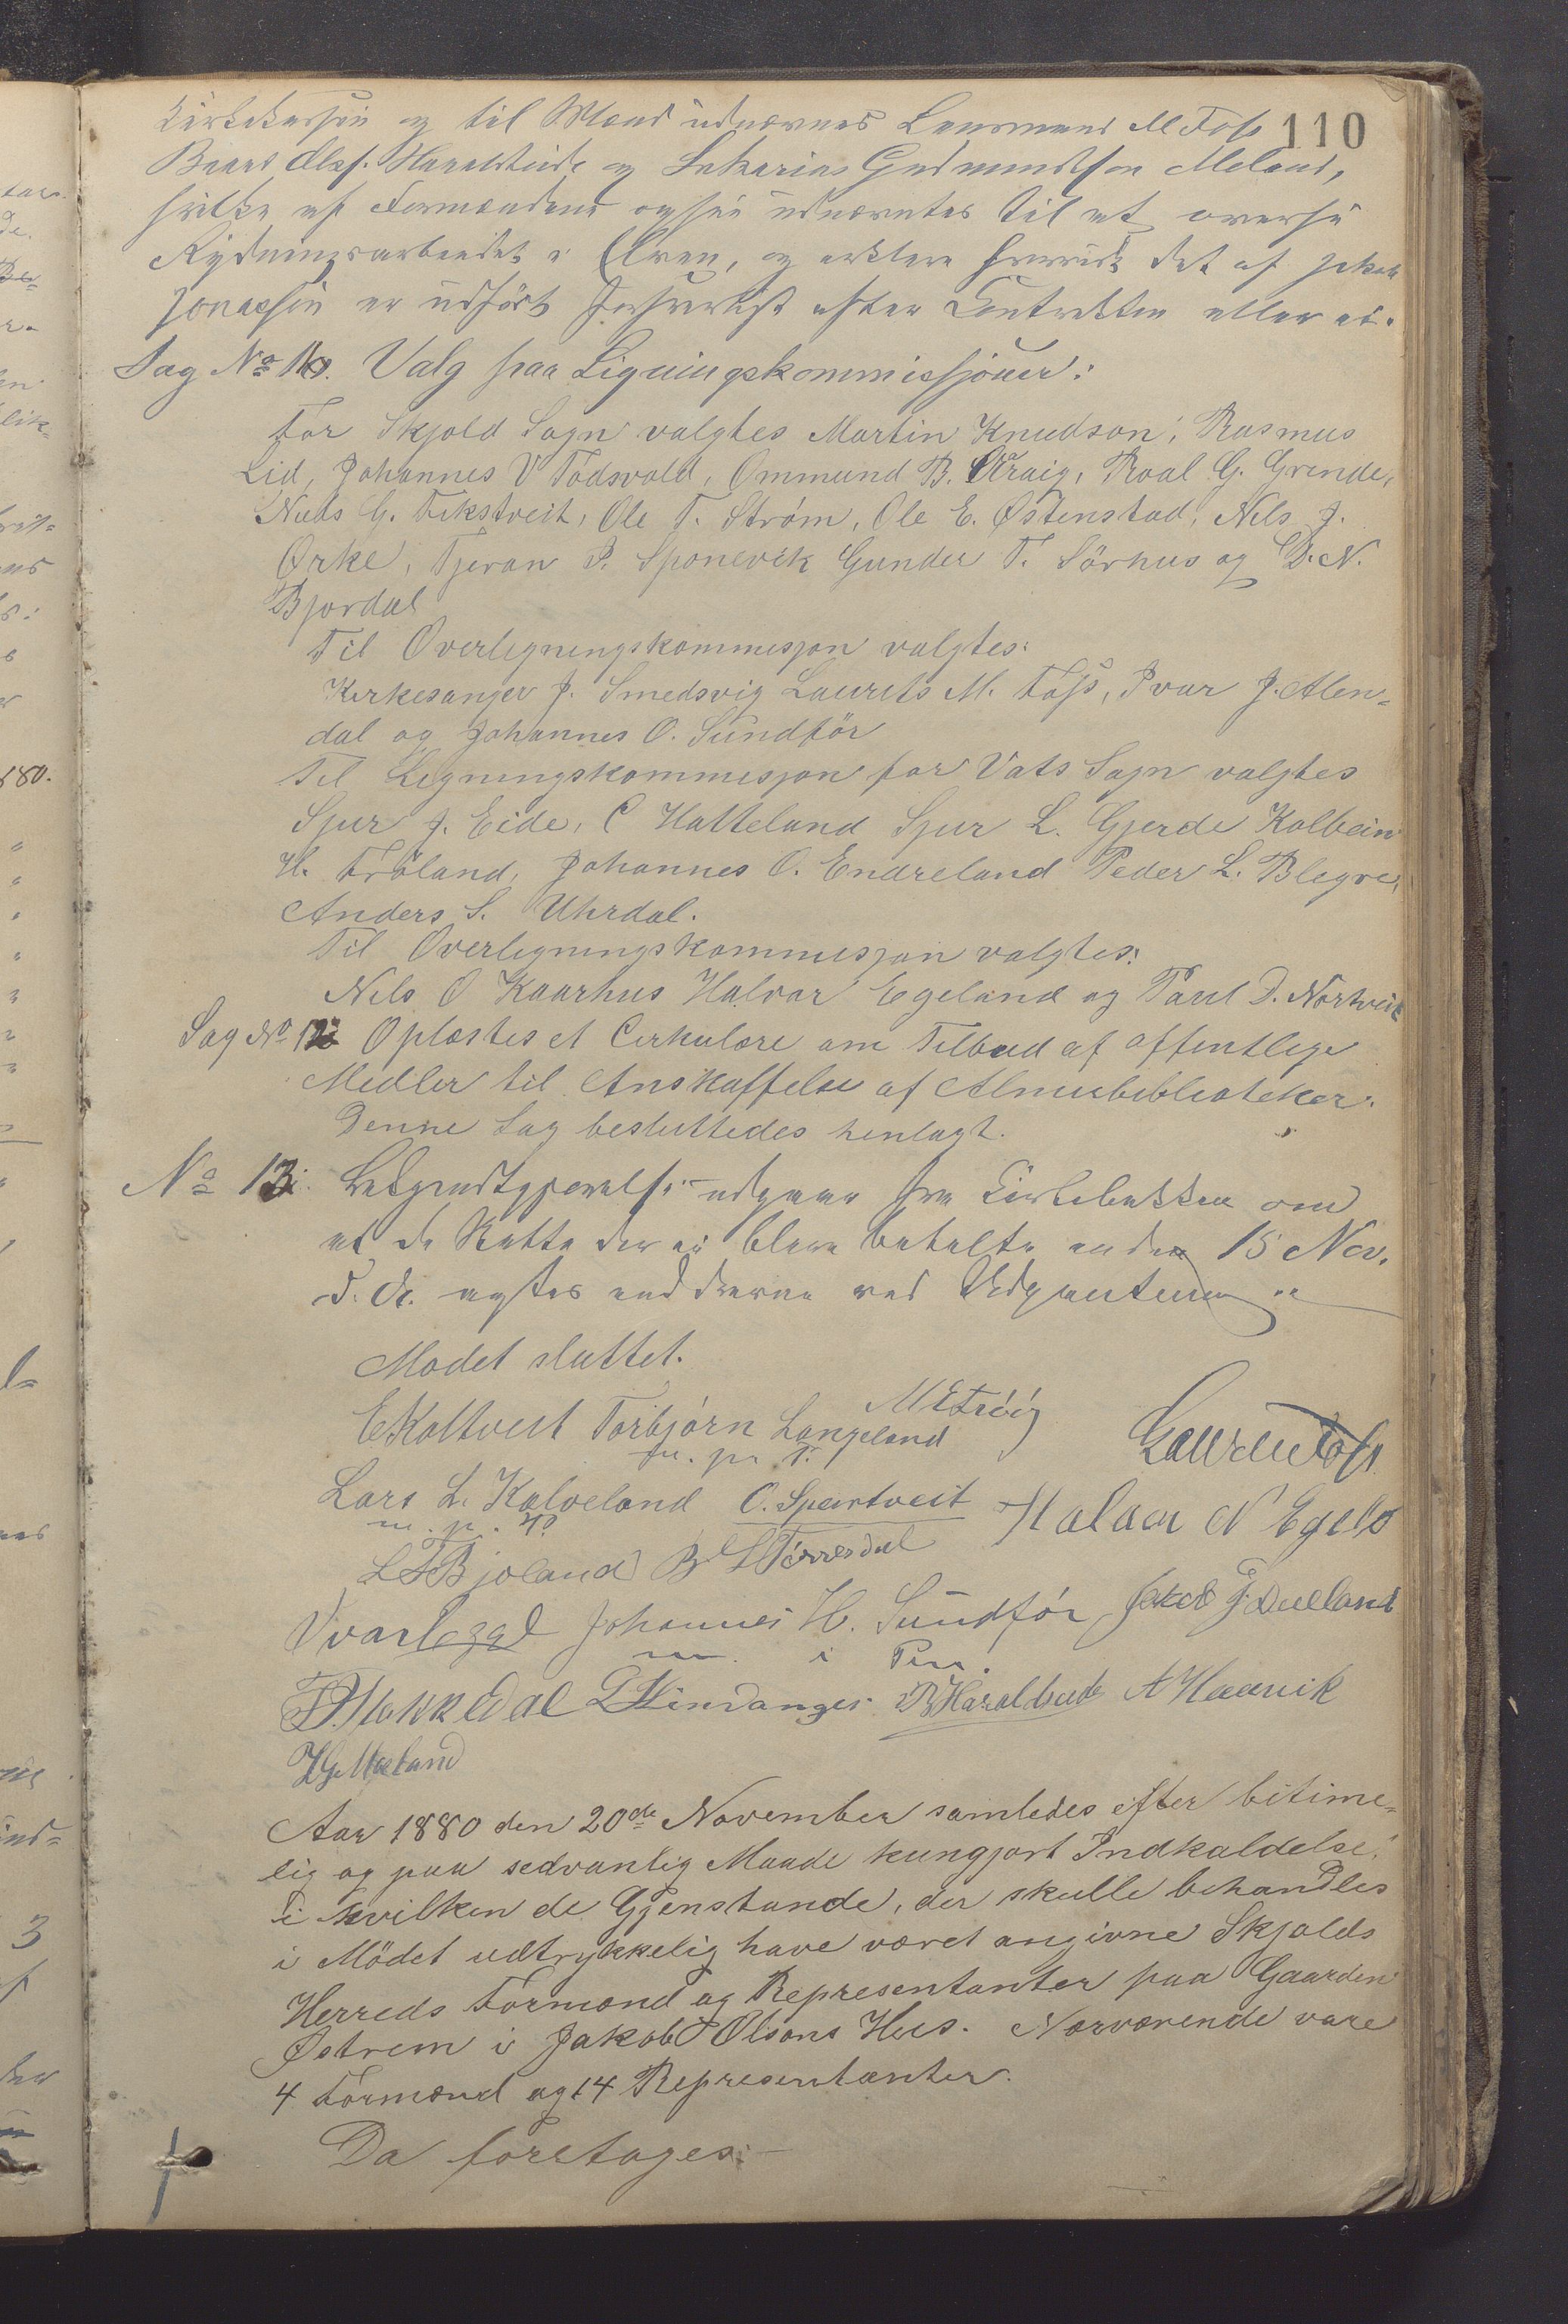 110
Kirkekassen og til Mænd udnævnes Lensmand M Foss
Baard Olss. Haraldseide og Sakarias Gudmundsen Meland,
hvilke af Formændene ogsaa udnævntes til at overse
Rydningsarbeidet i Elven, og erklære hvorvidt det af Jakob
Jonassen er udført forsvarligt efter Contrakten eller ei.
Sag No 10. Valg paa Ligningskommissjoner:
For Skjold Sogn valgtes Martin Knudson, Rasmus
Lid, Johannes V Todsvold, Ommund B. Kraig, Roal G. Grinde,
Nuds G. Fikstveit, Ole T. Strøm, Ole E. Østenstad, Nils J.
Ørke, Tjeran P. Sponevik Gunder T. Sörhus og D. N.
Bjordal
Til Overligningskommisjon valgtes:
Kirkesanger J. Smedsvig Laurits M. Foss, Ivar J. Alen-
dal og Johannes O. Sundför
Til Ligningskommisjon for Vats Sogn valgtes
Sjur J. Eide, C Hatteland Sjur L. Gjerde Kolbein
H. Fröland, Johannes O. Endreland Peder L. Blegre,
Anders S. Uhrdal.
Til Overligningskommisjon valgtes:
Nils O Kaarhus Halvor Egeland og Paul D. Nortveit
Sag No 12 Oplæstes et Cirkulære om Tilbud af offentlige
Midler til Anskaffelse af Almuebiblioteker.
Denne Sag besluttedes henlagt.
No 13. Bekjendtgjørelse udgaar fra Kirkebakken om
at de Skatte der ei blive betalte inden 15 Nov.
d. A. agtes inddrevne ved Udpantning
Mødet sluttet.
EKoltveit Torbjørn Langeland
m. p. P.
Lars L. Kalveland O. Spertveit Halvor N Egela
m. p. P.
LTBjoland
Johannes H. Sundför
m. i Pen.
BHaraldseide
Aar 1880 den 20de November samledes efter bitime-
lig og paa sedvanlig Maade kungjort Indkaldelse,
i hvilken de Gjenstande, der skulle behandles
i Mödet udtrykkelig have været angivne Skjolds
Herreds Formænd og Representanter paa Gaarden
Østrem i Jakob Olsons Hus. Nærværende vare
4 Formænd og 14 Representanter.
Da foretoges: